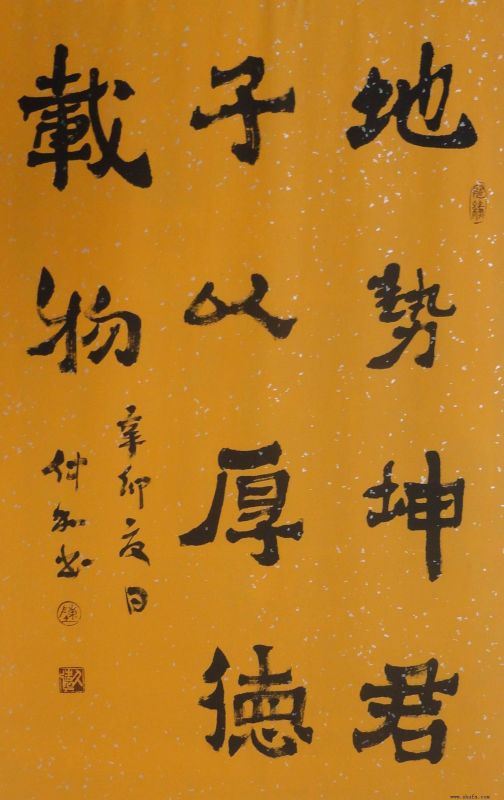 地势坤君
子以厚德
載物
辛卯夏日
仲和书
www.shufa.com